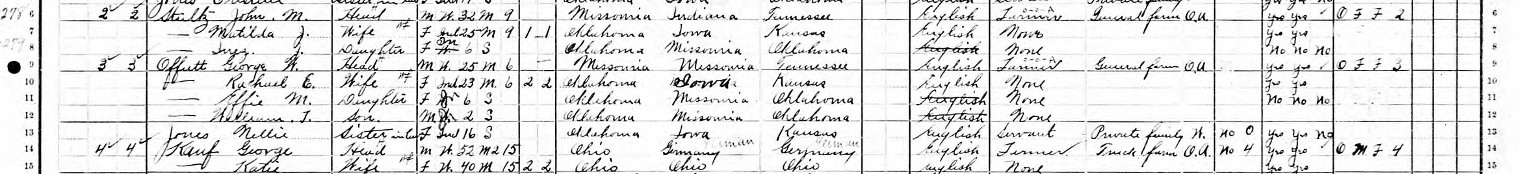 278 2 2 Stultz John. M. Head M W 32 M 9 Missouria Indiana Tennessee English Farmer General farm O.A yes yes O F F 2 6
— Matilda J. Wife F Ind 25 M 9 1 1 Oklahoma Iowa Kansas English None yes yes 7
— J. Daughter F In 6 S Oklahoma Missouria Oklahoma English None No No No 8
3 3 Offutt George W. Head M W. 25 M 6 — Missouria Missouria Tennessee English Farmer General farm O.A yes yes O F F 3 9
10 — Rachael E. Wife F Ind 23 M 6 2 2 Oklahoma Iowa Kansas English None yes yes 10
11 — Effie M. Daughter F In 6 S Oklahoma Missouria Oklahoma English None No No No 11
12 — William. T. Son. M In 2 S Oklahoma Missouria Oklahoma English None 12
13 Jones Nellie Sister in law F Ind 16 S Oklahoma Iowa Kansas English Servant Private family W. No 0 yes yes no 13
14 4 4 Kauf George Head M W. 52 M2 15 Ohio Germany German Germany German English Farmer Truck farm O.A. No 4 yes yes O M F 4 14
15 — Katie Wife F W. 40 M 15 2 2 Ohio Ohio Ohio English None yes yes 15